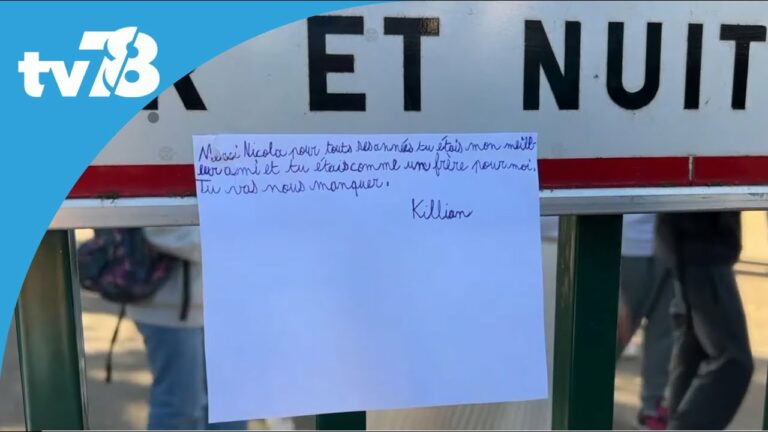 tv78
ET NUIT
Merci Nicola pour touts ses années tu étais mon meill-
eur ami et tu étais comme un frère pour moi.
Tu vas nous manquer.
Killian